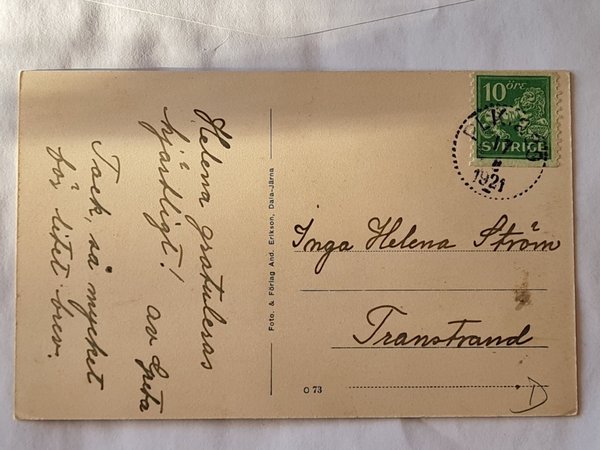 Helena gratuleras
hjärtligt! av Greta
Tack, så mycket
för litet brev.
Foto. & Förlag And. Erikson, Dala-Järna
10 ÖRE
SVERIGE
1921
Inga Helena Ström
Transtrand
O 73
D